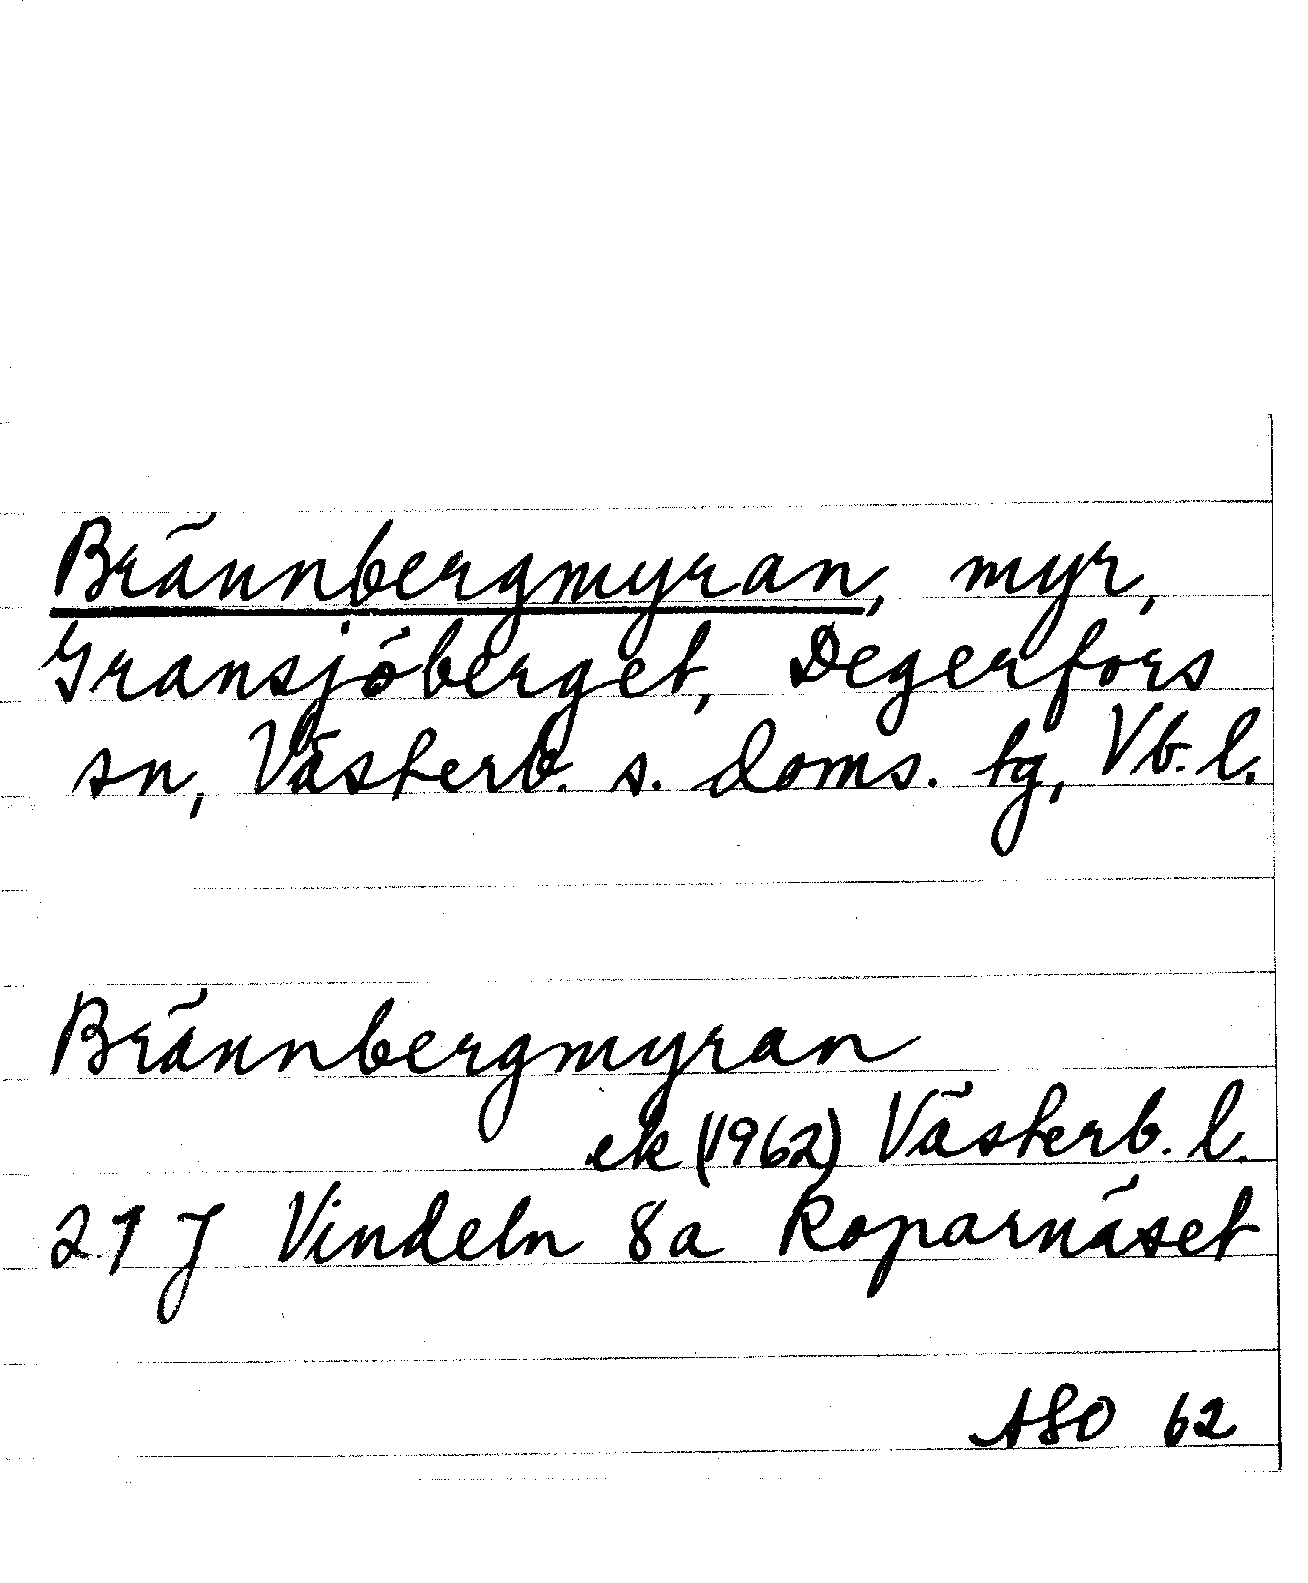 Brännbergmyran, myr,
Gransjöberget, Degerfors
sn, Västerb. s. doms. tg, Vb. l.
Brännbergmyran
ek (1962) Västerb. l.
21 J Vindeln 8a Roparnäset
ASO 62